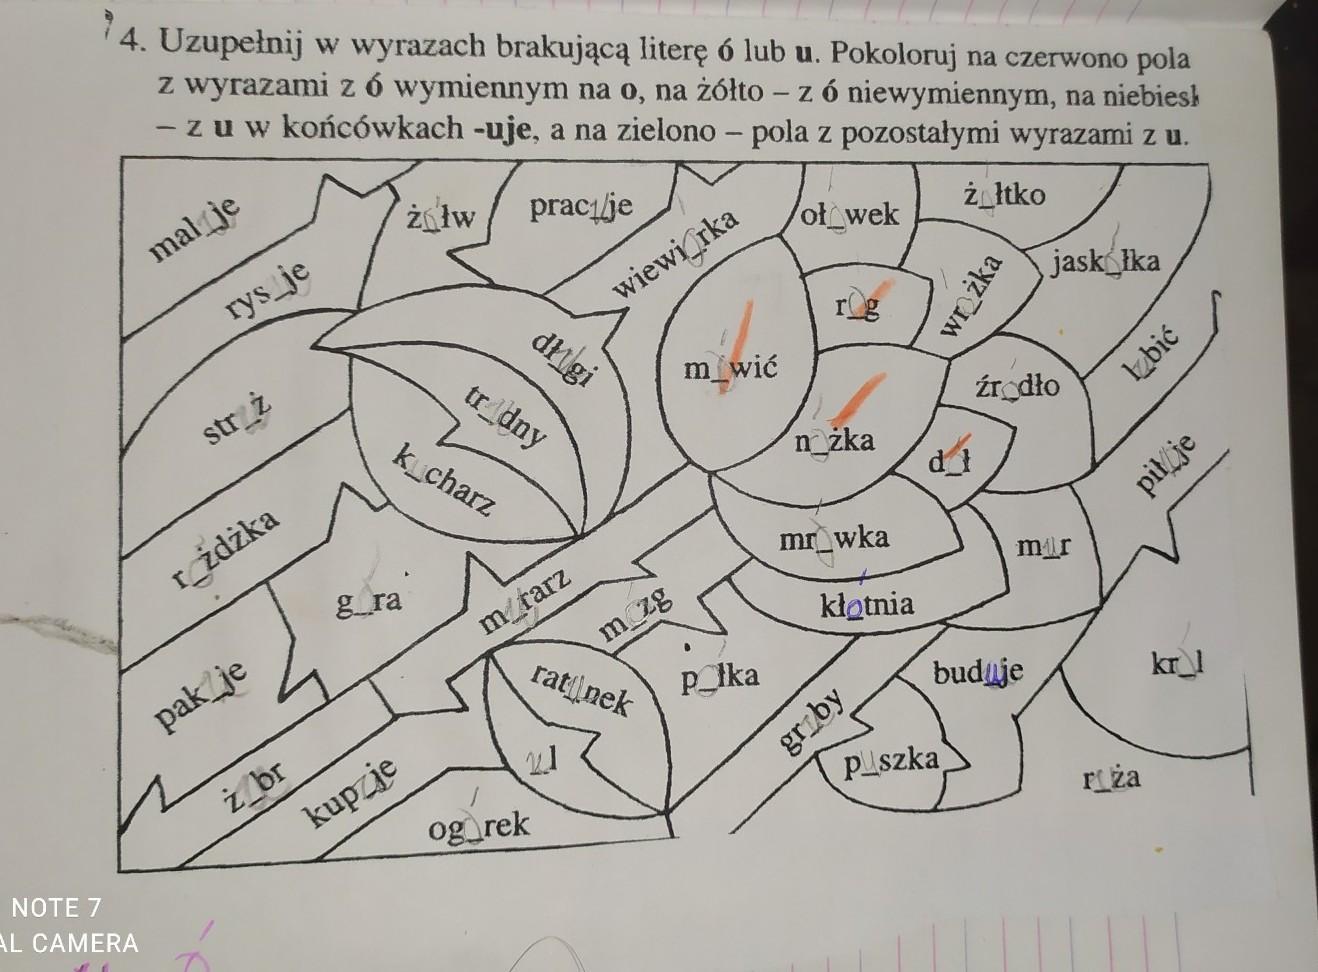 4. Uzupełnij w wyrazach brakującą literę ó lub u. Pokoloruj na czerwono pola
z wyrazami z ó wymiennym na o, na żółto – z ó niewymiennym, na niebiesk
– z u w końcówkach -uje, a na zielono – pola z pozostałymi wyrazami z u.
mal_je
ż_łw
prac_je
wiewi_rka
oł_wek
ż_łtko
rys_je
r_g
wr_żka
jask_łka
dł_gi
m_wić
l_bić
str_ż
tr_dny
n_żka
źr_dło
k_charz
d_ł
pił_je
r_żdżka
mr_wka
m_r
g_ra
m_rarz
m_zg
kłótnia
pak_je
rat_nek
p_łka
buduje
kr_l
ż_br
kup_je
ul
gr_by
p_szka
r_ża
og_rek
NOTE 7
AL CAMERA